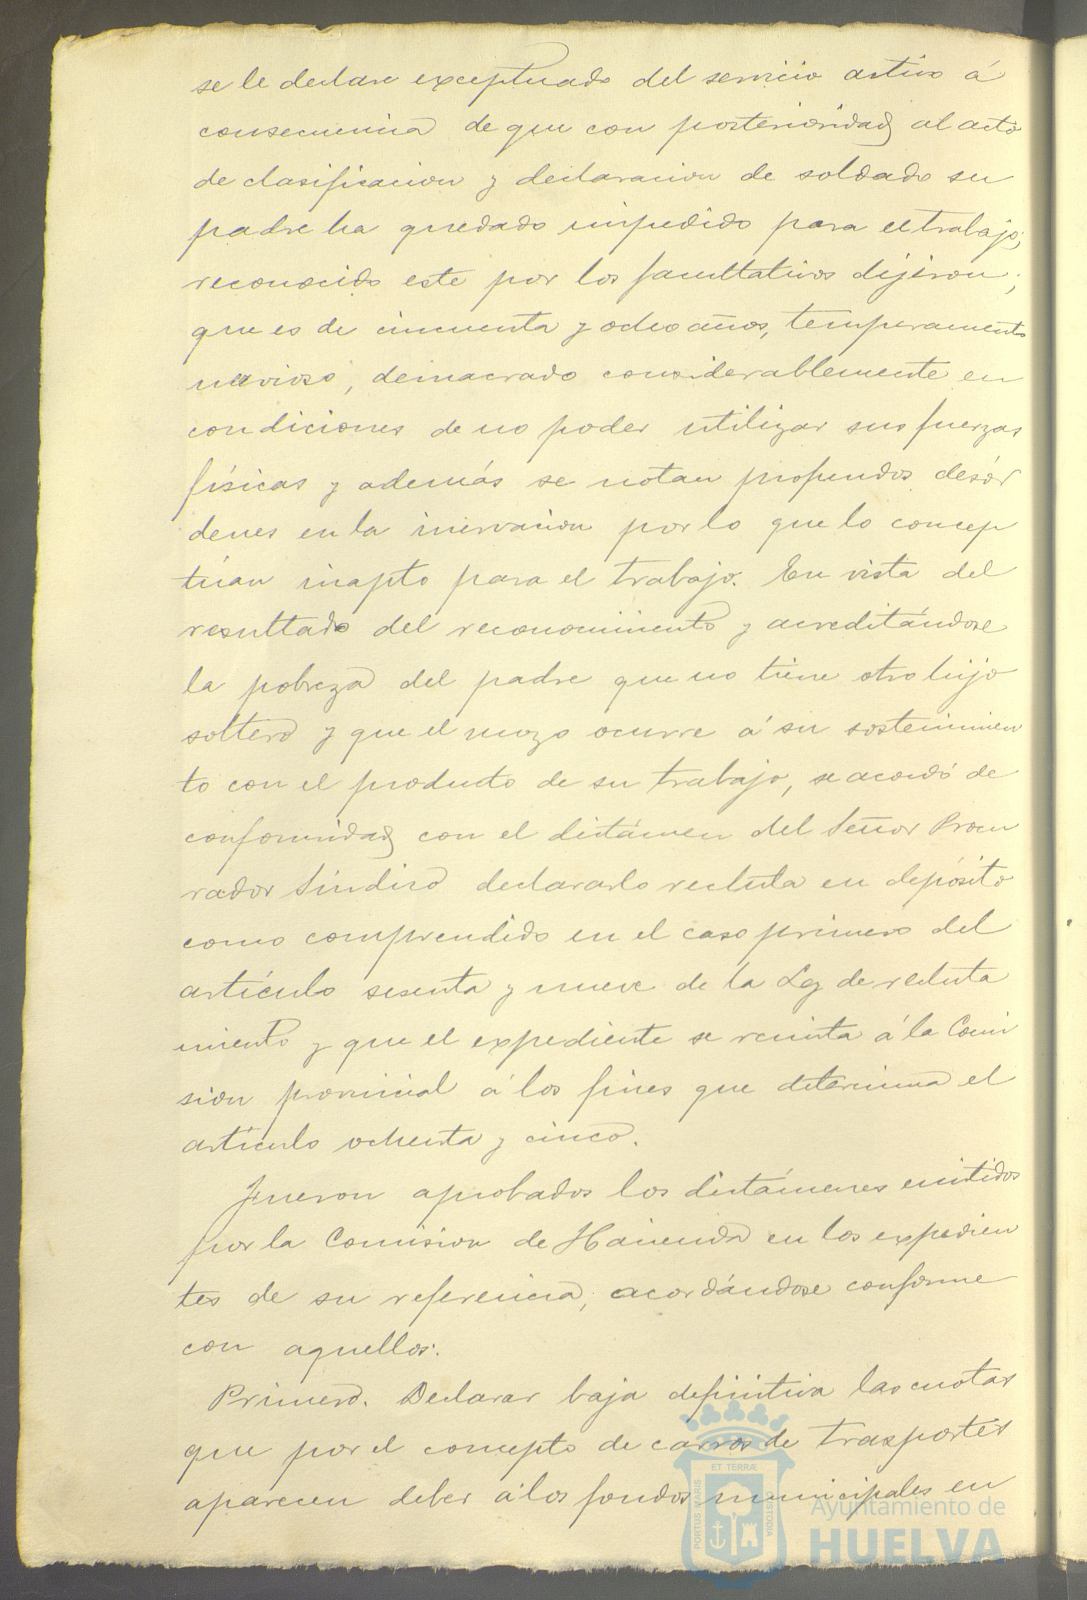 se le declare exceptuado del servicio activo á
consecuencia de que con posterioridad al acto
de clasificacion y declaracion de soldado su
padre ha quedado impedido para el trabajo;
reconocido este por los facultativos dijeron;
que es de cincuenta y ocho años, temperamento
nervioso, demacrado considerablemente en
condiciones de no poder utilizar sus fuerzas
físicas y además se notan profundos desór
denes en la inervacion por lo que lo concep
túan inapto para el trabajo. En vista del
resultado del reconocimiento y acreditándose
la pobreza del padre que no tiene otro hijo
soltero y que el mozo ocurre á su sostenimien
to con el producto de su trabajo, se acordó de
conformidad con el dictámen del Señor Procu
rador Síndico declararlo recluta en depósito
como comprendido en el caso primero del
artículo sesenta y nueve de la Ley de recluta
miento y que el expediente se remita á la Comi
sion provincial á los fines que determina el
artículo ochenta y cinco.
Fueron aprobados los dictámenes emitidos
por la Comision de Hacienda en los expedien
tes de su referencia, acordándose conforme
con aquellos:
Primero. Declarar baja definitiva las cuotas
que por el concepto de carros de trasportes
aparecen deber á los fondos municipales en
PORTUS MARIS
ET TERRÆ
CUSTODIA
Ayuntamiento de
HUELVA